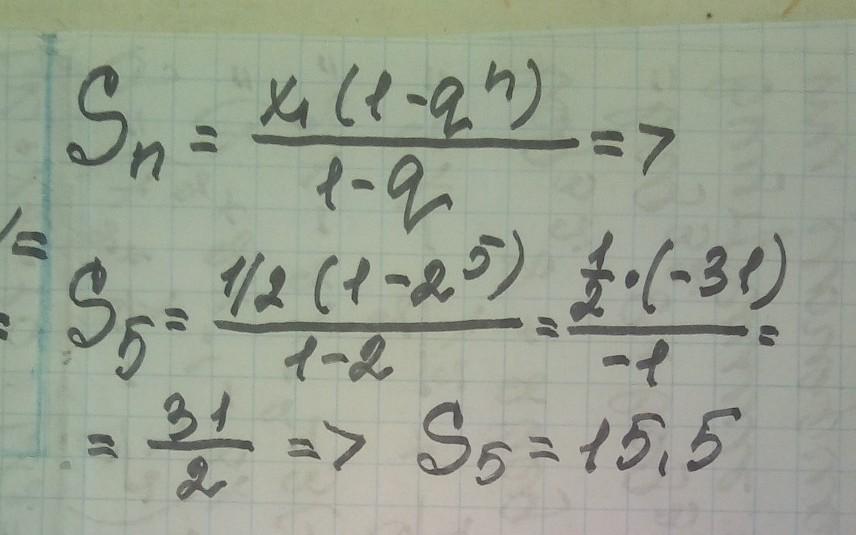 Sₙ = x₁(1-qⁿ)/(1-q) =>
S₅ = 1/2(1-2⁵)/(1-2) = 1/2·(-31)/-1 =
= 31/2 => S₅ = 15,5